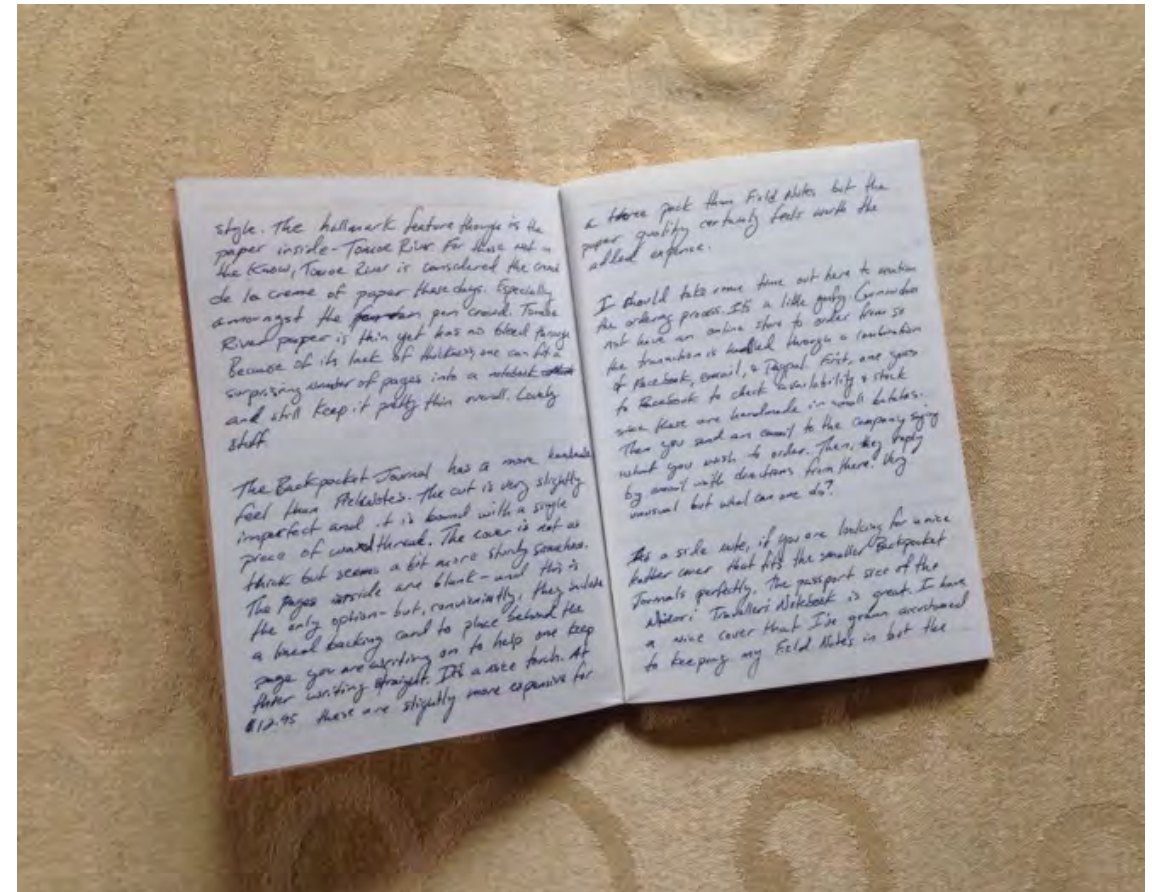 style. The hallmark feature though is the
paper inside - Tomoe River. For those not in
the know, Tomoe River is considered the creme
de la creme of paper these days. Especially
amongst the pen crowd. Tomoe
River paper is thin yet has no bleed through.
Because of its lack of thickness, one can fit a
surprising number of pages into a notebook
and still keep it pretty thin overall. Lovely
stuff.
The Backpocket Journal has a more handmade
feel than Fieldnotes. The cut is very slightly
imperfect and it is bound with a single
piece of waxed thread. The cover is not as
thick but seems a bit more sturdy somehow.
The pages inside are blank - and this is
the only option - but, conveniently, they include
a lined backing card to place behind the
page you are writing on to help one keep
their writing straight. It's a nice touch. At
$12.95 these are slightly more expensive for
a three pack than Field Notes but the
paper quality certainly feels worth the
added expense.
I should take some time out here to mention
the ordering process. It's a little goofy. Curnow does
not have an online store to order from so
the transaction is handled through a combination
of Facebook, email, & Paypal. First, one goes
to Facebook to check availability & stock
since these are handmade in small batches.
Then you send an email to the company saying
what you wish to order. Then, they reply
by email with directions from there. Very
unusual but what can one do?
As a side note, if you are looking for a nice
leather cover that fits the smaller Backpocket
Journals perfectly. The passport size of the
Midori Travelleri Notebook is great. I have
a nice cover that I've grown accustomed
to keeping my Field Notes in but the